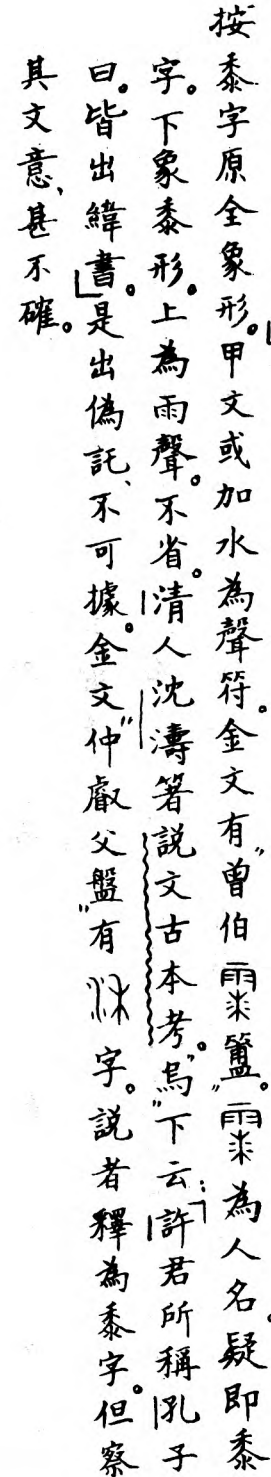 按黍字原全象形。甲文或加水為聲符。金文有"曾伯𩂣簠"。𩂣為人名。疑即黍
字。下象黍形。上為雨聲。不省。清人沈濤著說文古本考。"烏"下云：「許君所稱孔子
曰。皆出緯書。」是出偽託、不可據。金文"仲𠭯父盤"有字。說者釋為黍字。但察
其文意、甚不確。